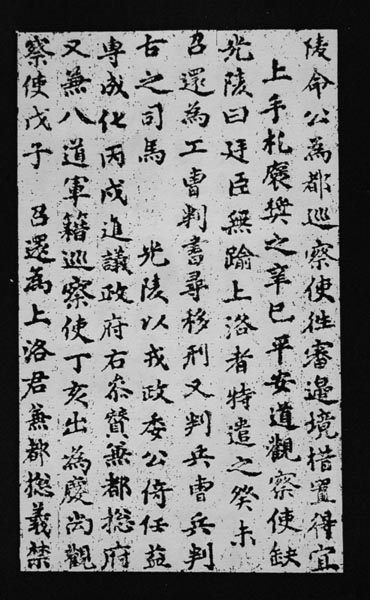 陵命公爲都巡察使徃審邊境措置得宜
上手札襃奬之辛巳平安道觀察使缺
光陵曰廷臣無踰上洛者特遣之癸未
召還為工曹判書尋移刑又判兵曹兵判
古之司馬　光陵以戎政委公倚任益
專成化丙戌進議政府右叅賛兼都揔府
又兼八道軍籍巡察使丁亥出為慶尚觀
察使戊子　召還為上洛君兼都揔義禁